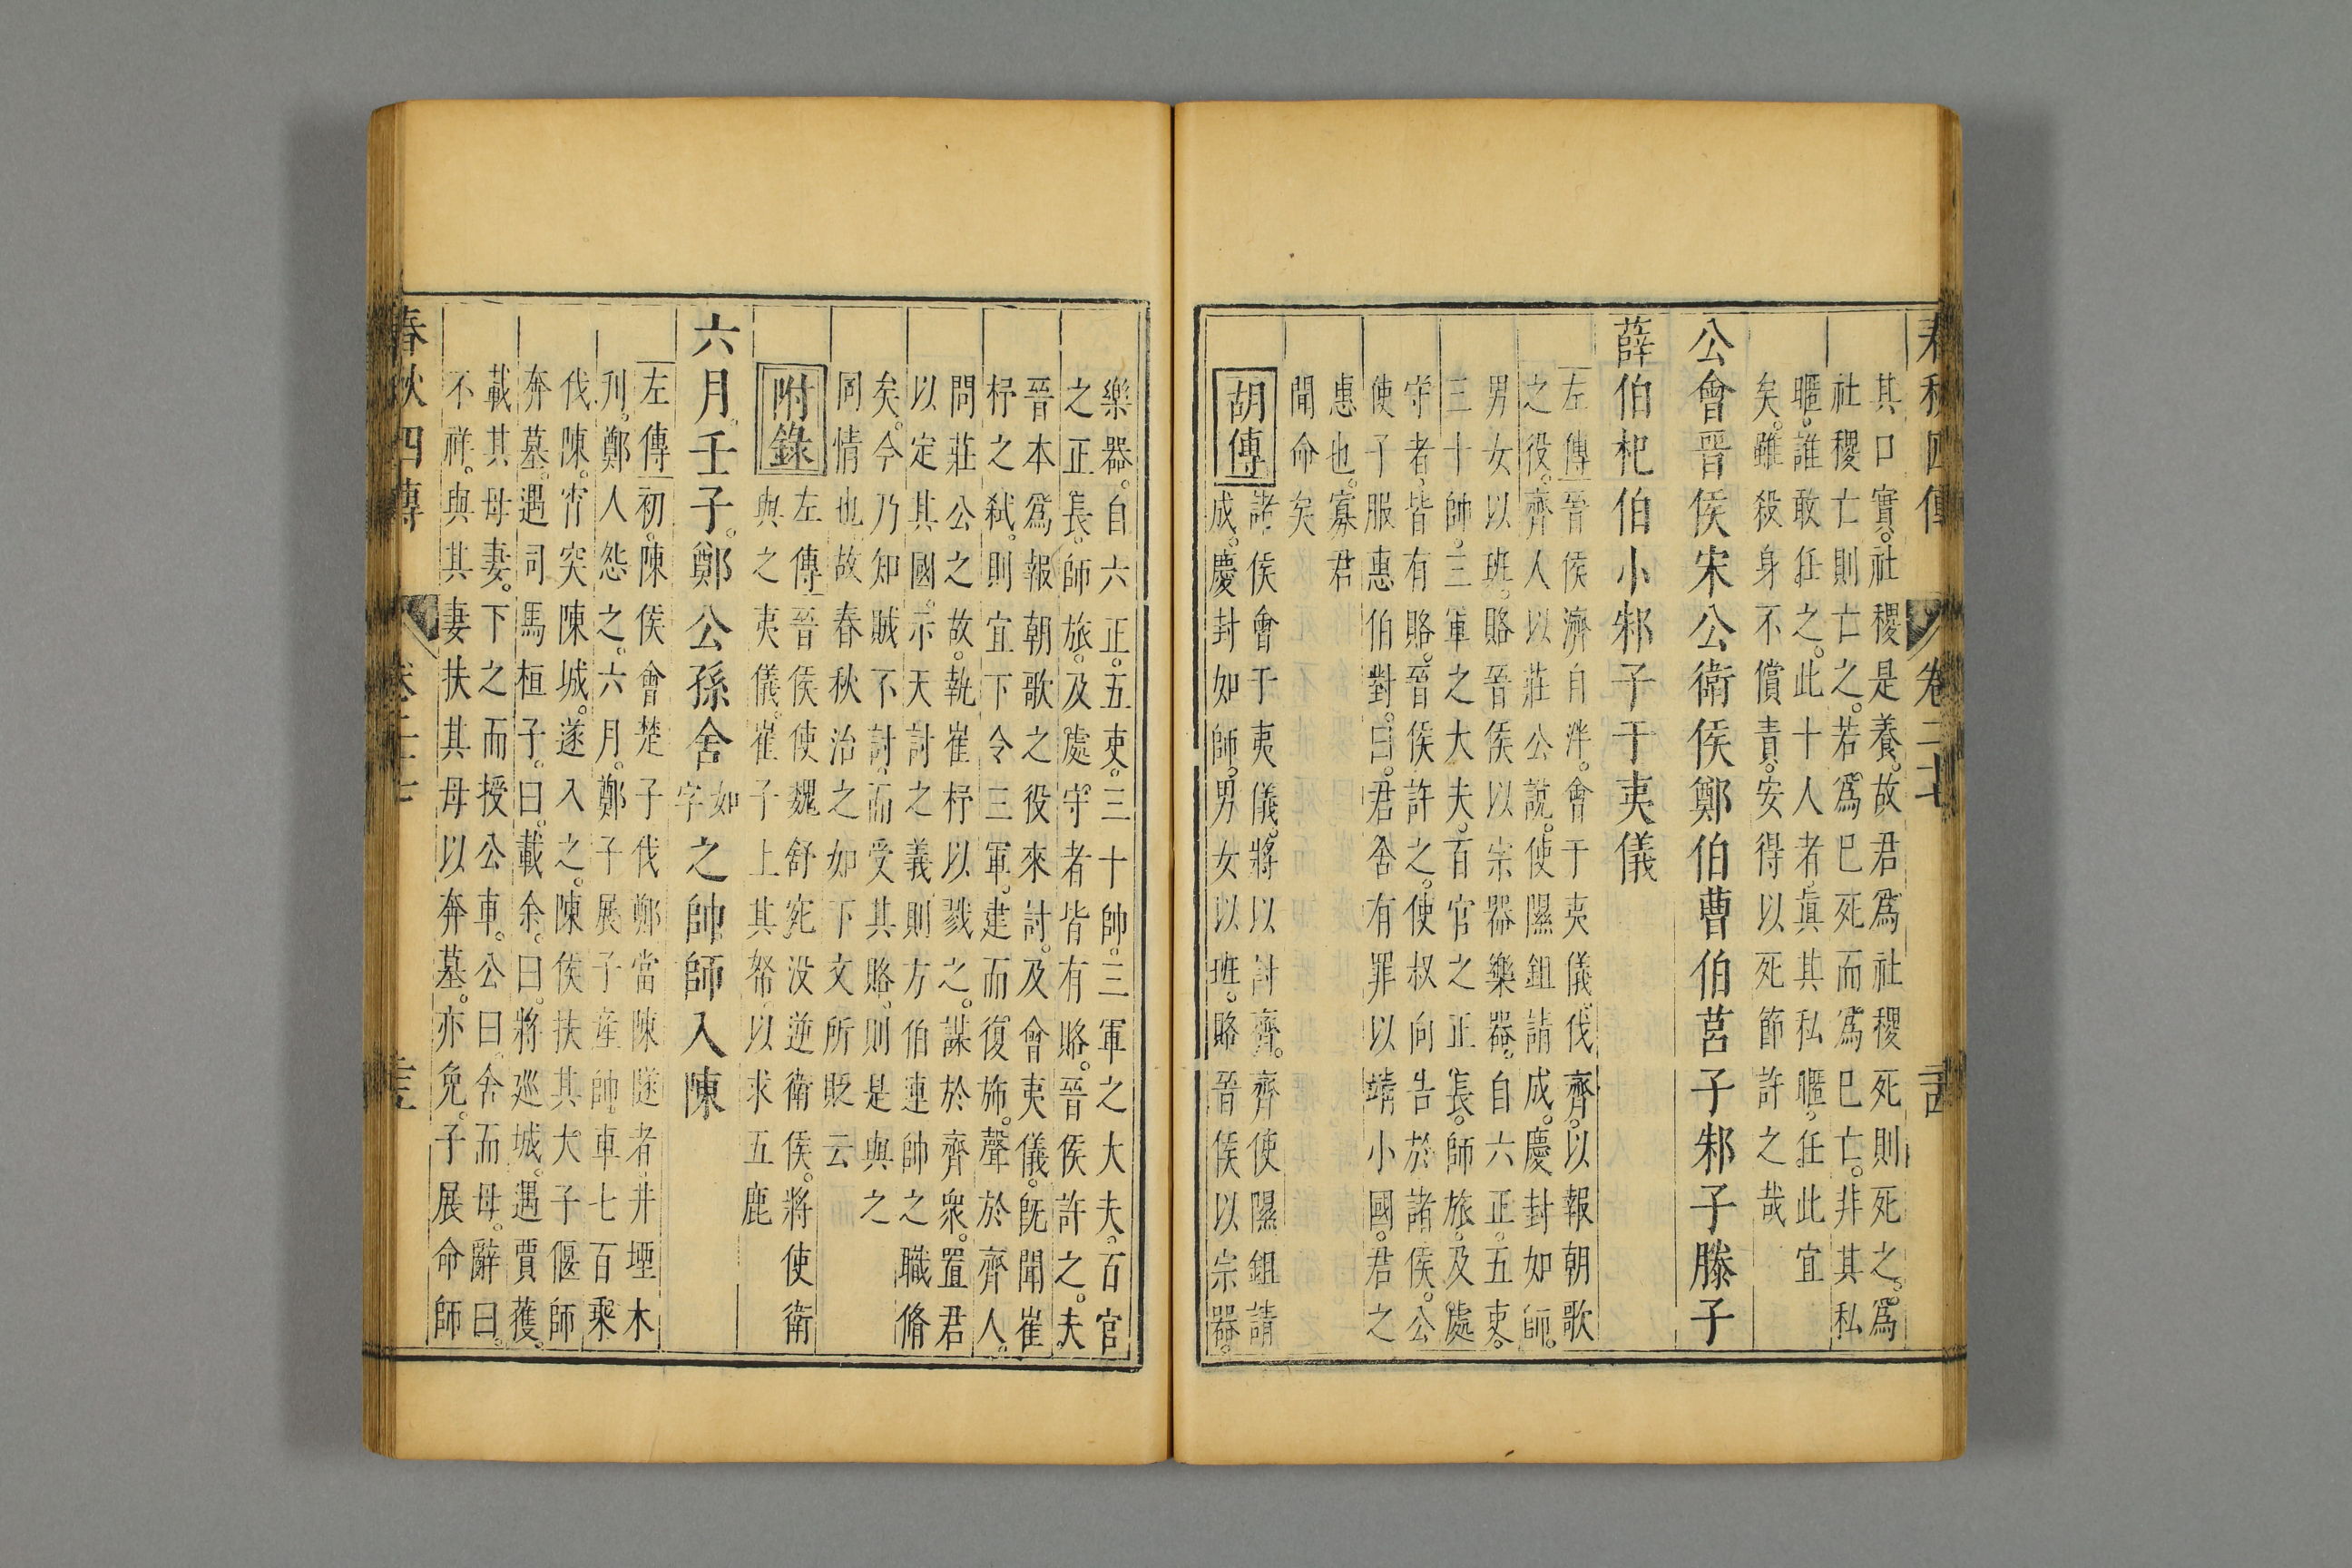 春秋四傳 卷二十七
其口實。社稷是養。故君爲社稷死則死之。爲
社稷亡則亡之。若爲巳死而爲巳亡。非其私
暱。誰敢任之。此十人者。眞其私暱。任此宜
矣。雖殺身不償責。安得以死節許之哉
公會晉侯宋公衛侯鄭伯曹伯莒子邾子滕子
薛伯杞伯小邾子于夷儀
左傳晉侯濟自泮。會于夷儀。伐齊。以報朝歌
之役。齊人以莊公說。使隰鉏請成。慶封如師。
男女以班。賂晉侯以宗器樂器。自六正。五吏。
三十帥。三軍之大夫。百官之正長。師旅。及處
守者。皆有賂。晉侯許之。使叔向告於諸侯。公
使子服惠伯對。曰。君舍有罪以靖小國。君之
惠也。寡君
聞命矣
胡傳諸侯會于夷儀。將以討齊。齊使隰鉏請
成。慶封如師。男女以班。賂晉侯以宗器。
樂器。自六正。五吏。三十帥。三軍之大夫。百官
之正長。師旅。及處守者皆有賂。晉侯許之。夫
晉本爲報朝歌之役來討。及會夷儀。旣聞崔
杼之弒。則宜下令三軍。建而復旆。聲於齊人。
問莊公之故。執崔杼以戮之。謀於齊衆。置君
以定其國。示天討之義。則方伯連帥之職脩
矣。今乃知賊不討。而受其賂。則是與之
同情也。故春秋治之如下文所貶云
附錄左傳晉侯使魏舒宛没逆衛侯。將使衛
與之夷儀。崔子止其帑。以求五鹿
六月。壬子。鄭公孫舍如字之帥師入陳
左傳初。陳侯會楚子伐鄭當陳隧者井堙木
刋。鄭人怨之。六月。鄭子展子産帥車七百乘
伐陳。宵突陳城。遂入之。陳侯扶其大子偃師
奔墓。遇司馬桓子。曰。載余。曰。將巡城。遇賈獲。
載其母妻。下之而授公車。公曰。舍而母。辭曰。
不祥。與其妻扶其母以奔墓。亦免。子展命師
春秋四傳